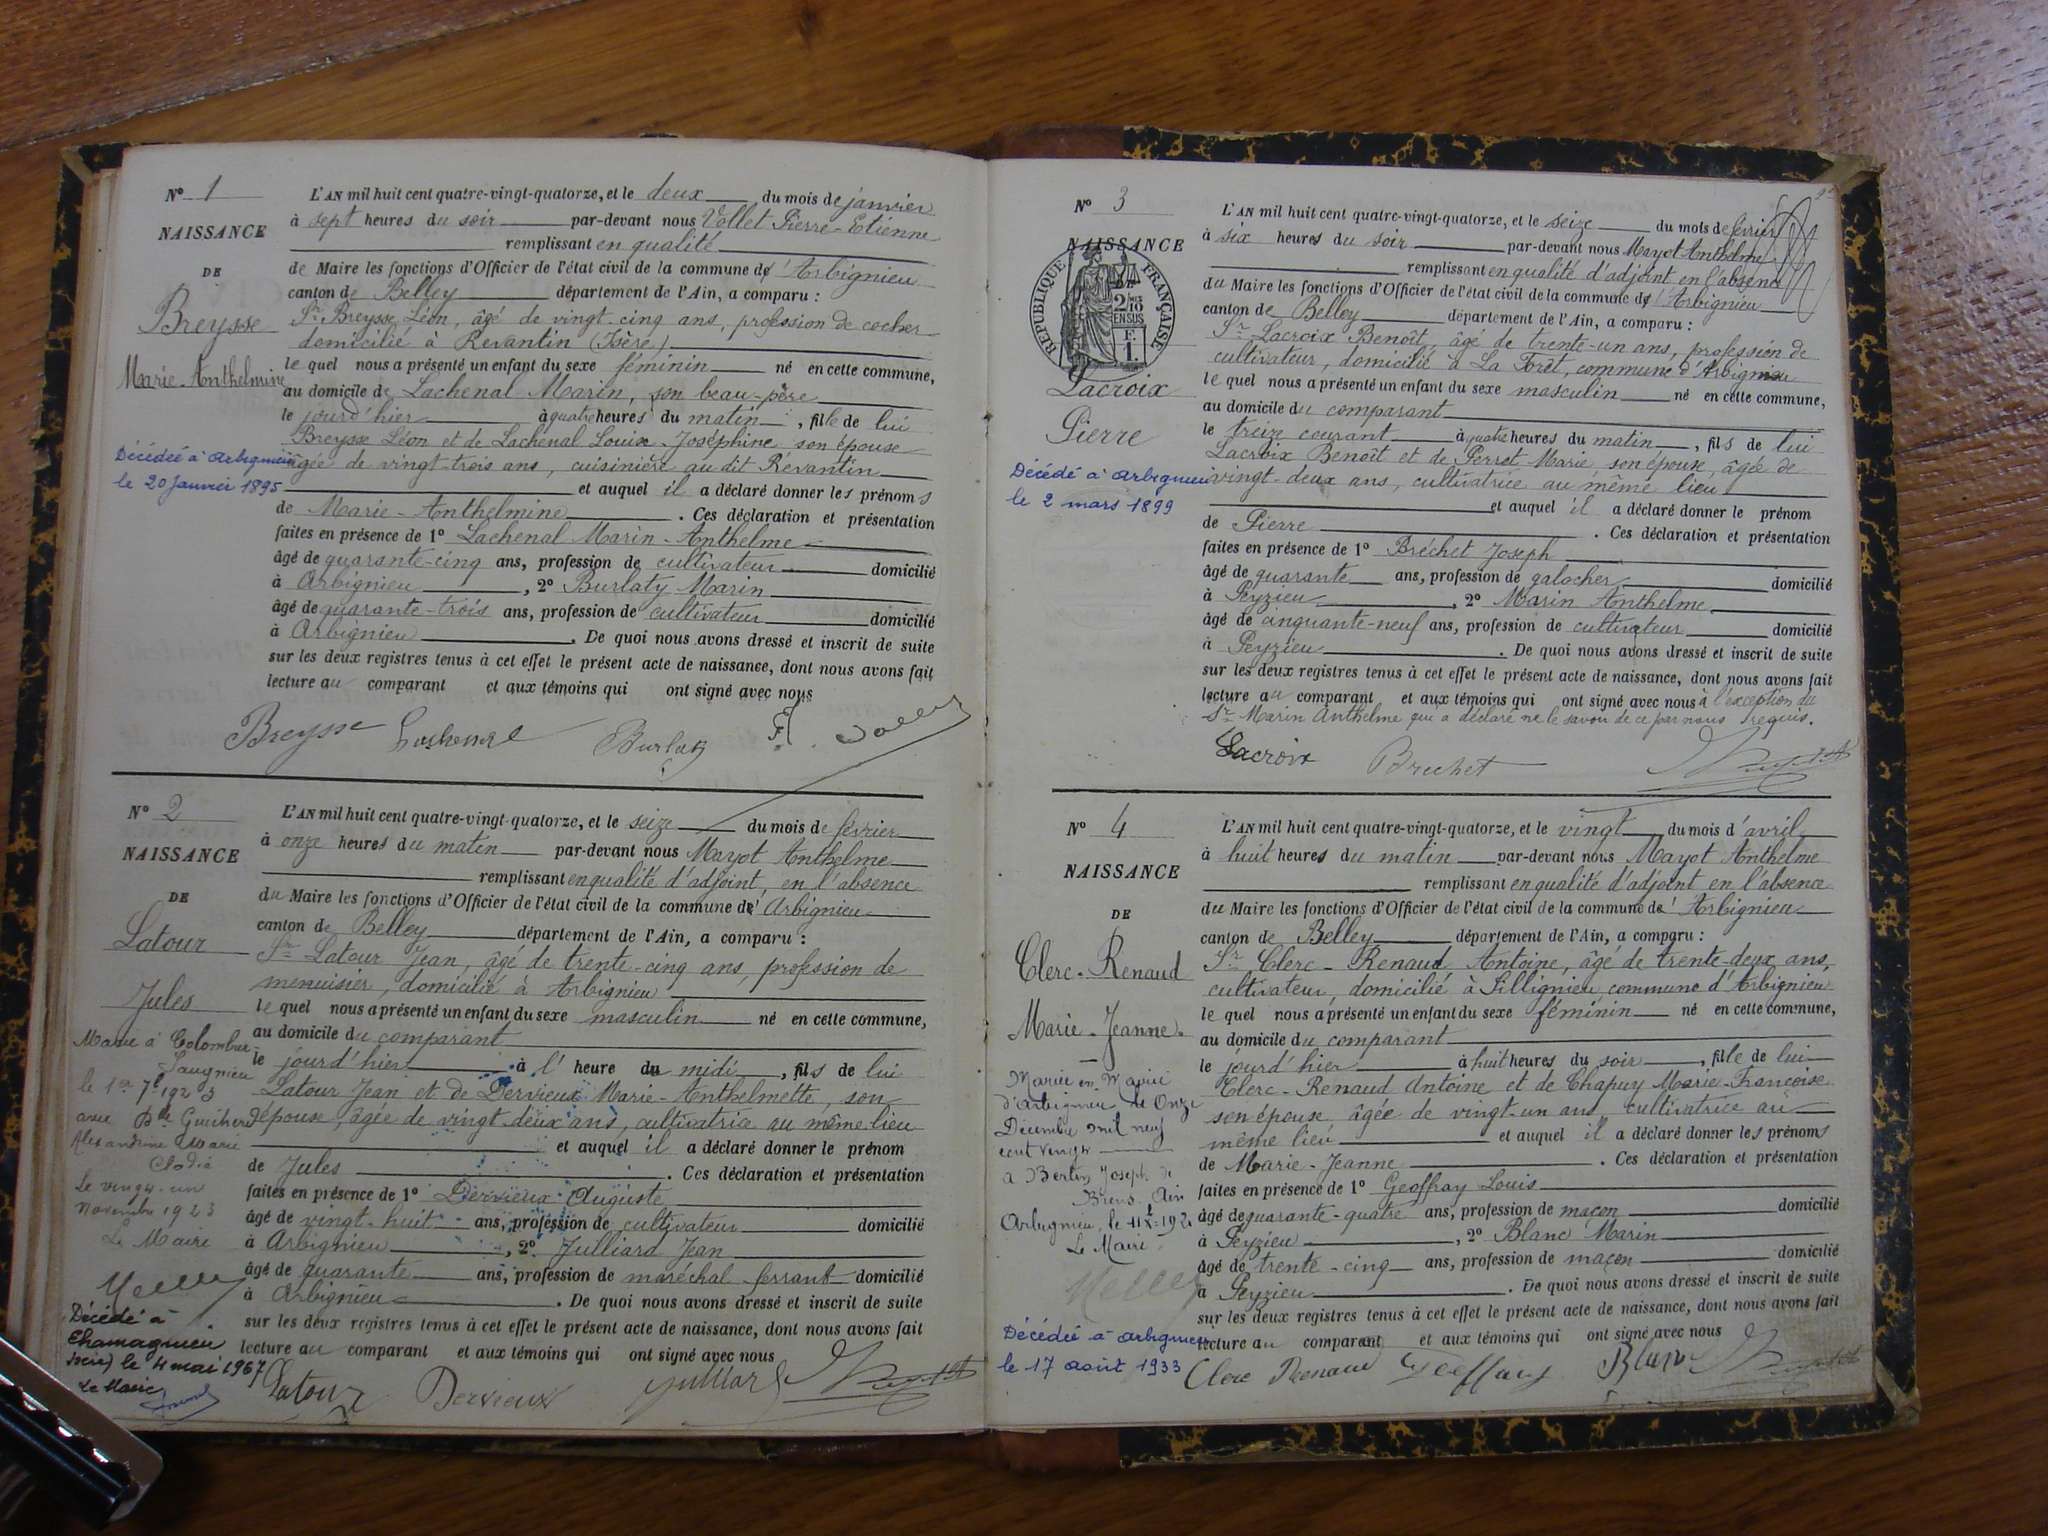 N° 1
NAISSANCE
DE
Breysse
Marie-Anthelmine
Décédée à Arbignieu
le 20 Janvier 1895
L'AN mil huit cent quatre-vingt-quatorze, et le deux du mois de janvier
à sept heures du soir par-devant nous Vollet Pierre-Etienne
remplissant en qualité
de Maire les fonctions d'Officier de l'état civil de la commune d'Arbignieu
canton de Belley département de l'Ain, a comparu :
Sr Breysse Léon, âgé de vingt-cinq ans, profession de cocher
domicilié à Revantin (Isère)
le quel nous a présenté un enfant du sexe féminin né en cette commune,
au domicile de Lachenal Marin, son beau-père
le jourd'hier à quatre heures du matin, fille de lui
Breysse Léon et de Lachenal Louise-Joséphine son épouse
âgée de vingt-trois ans, cuisinière au dit Revantin
et auquel il a déclaré donner les prénoms
de Marie-Anthelmine. Ces déclaration et présentation
faites en présence de 1° Lachenal Marin-Anthelme
âgé de quarante-cinq ans, profession de cultivateur domicilié
à Arbignieu, 2° Burlaty Marin
âgé de quarante-trois ans, profession de cultivateur domicilié
à Arbignieu. De quoi nous avons dressé et inscrit de suite
sur les deux registres tenus à cet effet le présent acte de naissance, dont nous avons fait
lecture au comparant et aux témoins qui ont signé avec nous
Breysse Lachenal Burlaty
N° 2
NAISSANCE
DE
Latour
Jules
Marié à Colombier
Saugnieu
le 1er 7bre 1923
avec Dlle
Alexandrine Marie
Le vingt-un
Novembre 1923
Le Maire
Décédé à
Chamagnieu
(Isère) le 4 mai 1967
Le Maire
L'AN mil huit cent quatre-vingt-quatorze, et le seize du mois de février
à onze heures du matin par-devant nous Mayot Anthelme
remplissant en qualité d'adjoint, en l'absence
du Maire les fonctions d'Officier de l'état civil de la commune d'Arbignieu
canton de Belley département de l'Ain, a comparu :
Sr Latour Jean, âgé de trente-cinq ans, profession de
menuisier, domicilié à Arbignieu
le quel nous a présenté un enfant du sexe masculin né en cette commune,
au domicile du comparant
le jourd'hier à l'heure du midi, fils de lui
Latour Jean et de Dervieux Marie-Anthelmette, son
épouse, âgée de vingt-deux ans, cultivatrice au même lieu
et auquel il a déclaré donner le prénom
de Jules. Ces déclaration et présentation
faites en présence de 1° Dervieux Auguste
âgé de vingt-huit ans, profession de cultivateur domicilié
à Arbignieu, 2° Julliard Jean
âgé de quarante ans, profession de maréchal ferrant domicilié
à Arbignieu. De quoi nous avons dressé et inscrit de suite
sur les deux registres tenus à cet effet le présent acte de naissance, dont nous avons fait
lecture au comparant et aux témoins qui ont signé avec nous
Latour Dervieux Julliard
N° 3
NAISSANCE
RÉPUBLIQUE FRANÇAISE
2/10 EN SUS
F. 1.
Lacroix
Pierre
Décédé à Arbignieu
le 2 mars 1899
L'AN mil huit cent quatre-vingt-quatorze, et le seize du mois de février
à six heures du soir par-devant nous Mayot Anthelme
remplissant en qualité d'adjoint en l'absence
du Maire les fonctions d'Officier de l'état civil de la commune d'Arbignieu
canton de Belley département de l'Ain, a comparu :
Sr Lacroix Benoît, âgé de trente-un ans, profession de
cultivateur, domicilié à La Forêt, commune d'Arbignieu
le quel nous a présenté un enfant du sexe masculin né en cette commune,
au domicile du comparant
le treize courant à quatre heures du matin, fils de lui
Lacroix Benoît et de Perret Marie, son épouse, âgée de
vingt-deux ans, cultivatrice au même lieu
et auquel il a déclaré donner le prénom
de Pierre. Ces déclaration et présentation
faites en présence de 1° Bréchet Joseph
âgé de quarante ans, profession de galocher domicilié
à Peyzieu, 2° Marin Anthelme
âgé de cinquante-neuf ans, profession de cultivateur domicilié
à Peyzieu. De quoi nous avons dressé et inscrit de suite
sur les deux registres tenus à cet effet le présent acte de naissance, dont nous avons fait
lecture au comparant et aux témoins qui ont signé avec nous à l'exception du
Sr Marin Anthelme qui a déclaré ne le savoir de ce par nous requis.
Lacroix Brechet
N° 4
NAISSANCE
DE
Clerc-Renaud
Marie-Jeanne
Mariée en Mairie
d'Arbignieu le Onze
Décembre mil neuf
cent vingt
à Bertin Joseph de
Brens Ain
Arbignieu, le
Le Maire
Décédée à Arbignieu
le 17 août 1933
L'AN mil huit cent quatre-vingt-quatorze, et le vingt du mois d'avril
à huit heures du matin par-devant nous Mayot Anthelme
remplissant en qualité d'adjoint en l'absence
du Maire les fonctions d'Officier de l'état civil de la commune d'Arbignieu
canton de Belley département de l'Ain, a comparu :
Sr Clerc-Renaud Antoine, âgé de trente-deux ans,
cultivateur, domicilié à Sillignieu, commune d'Arbignieu
le quel nous a présenté un enfant du sexe féminin né en cette commune,
au domicile du comparant
le jourd'hier à huit heures du soir, fille de lui
Clerc-Renaud Antoine et de Chapuy Marie-Françoise
son épouse, âgée de vingt-un ans, cultivatrice au
même lieu et auquel il a déclaré donner les prénoms
de Marie-Jeanne. Ces déclaration et présentation
faites en présence de 1° Geoffray Louis
âgé de quarante-quatre ans, profession de maçon domicilié
à Peyzieu, 2° Blanc Marin
âgé de trente-cinq ans, profession de maçon domicilié
à Peyzieu. De quoi nous avons dressé et inscrit de suite
sur les deux registres tenus à cet effet le présent acte de naissance, dont nous avons fait
lecture au comparant et aux témoins qui ont signé avec nous
Clerc Renaud Geoffray Blanc